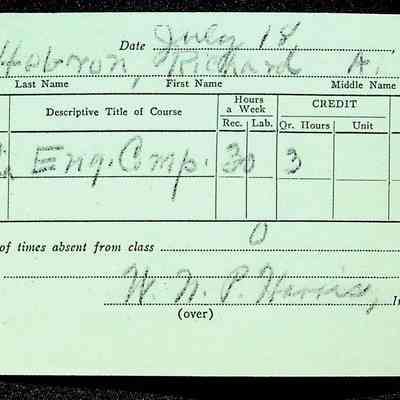 Date July 18,
Hobron, Richard A.
Last Name First Name Middle Name
Descriptive Title of Course Hours a Week CREDIT
Rec. Lab. Qr. Hours Unit
Eng. Comp. 3 0 3
of times absent from class 0
W. N. P. Harris,
(over)